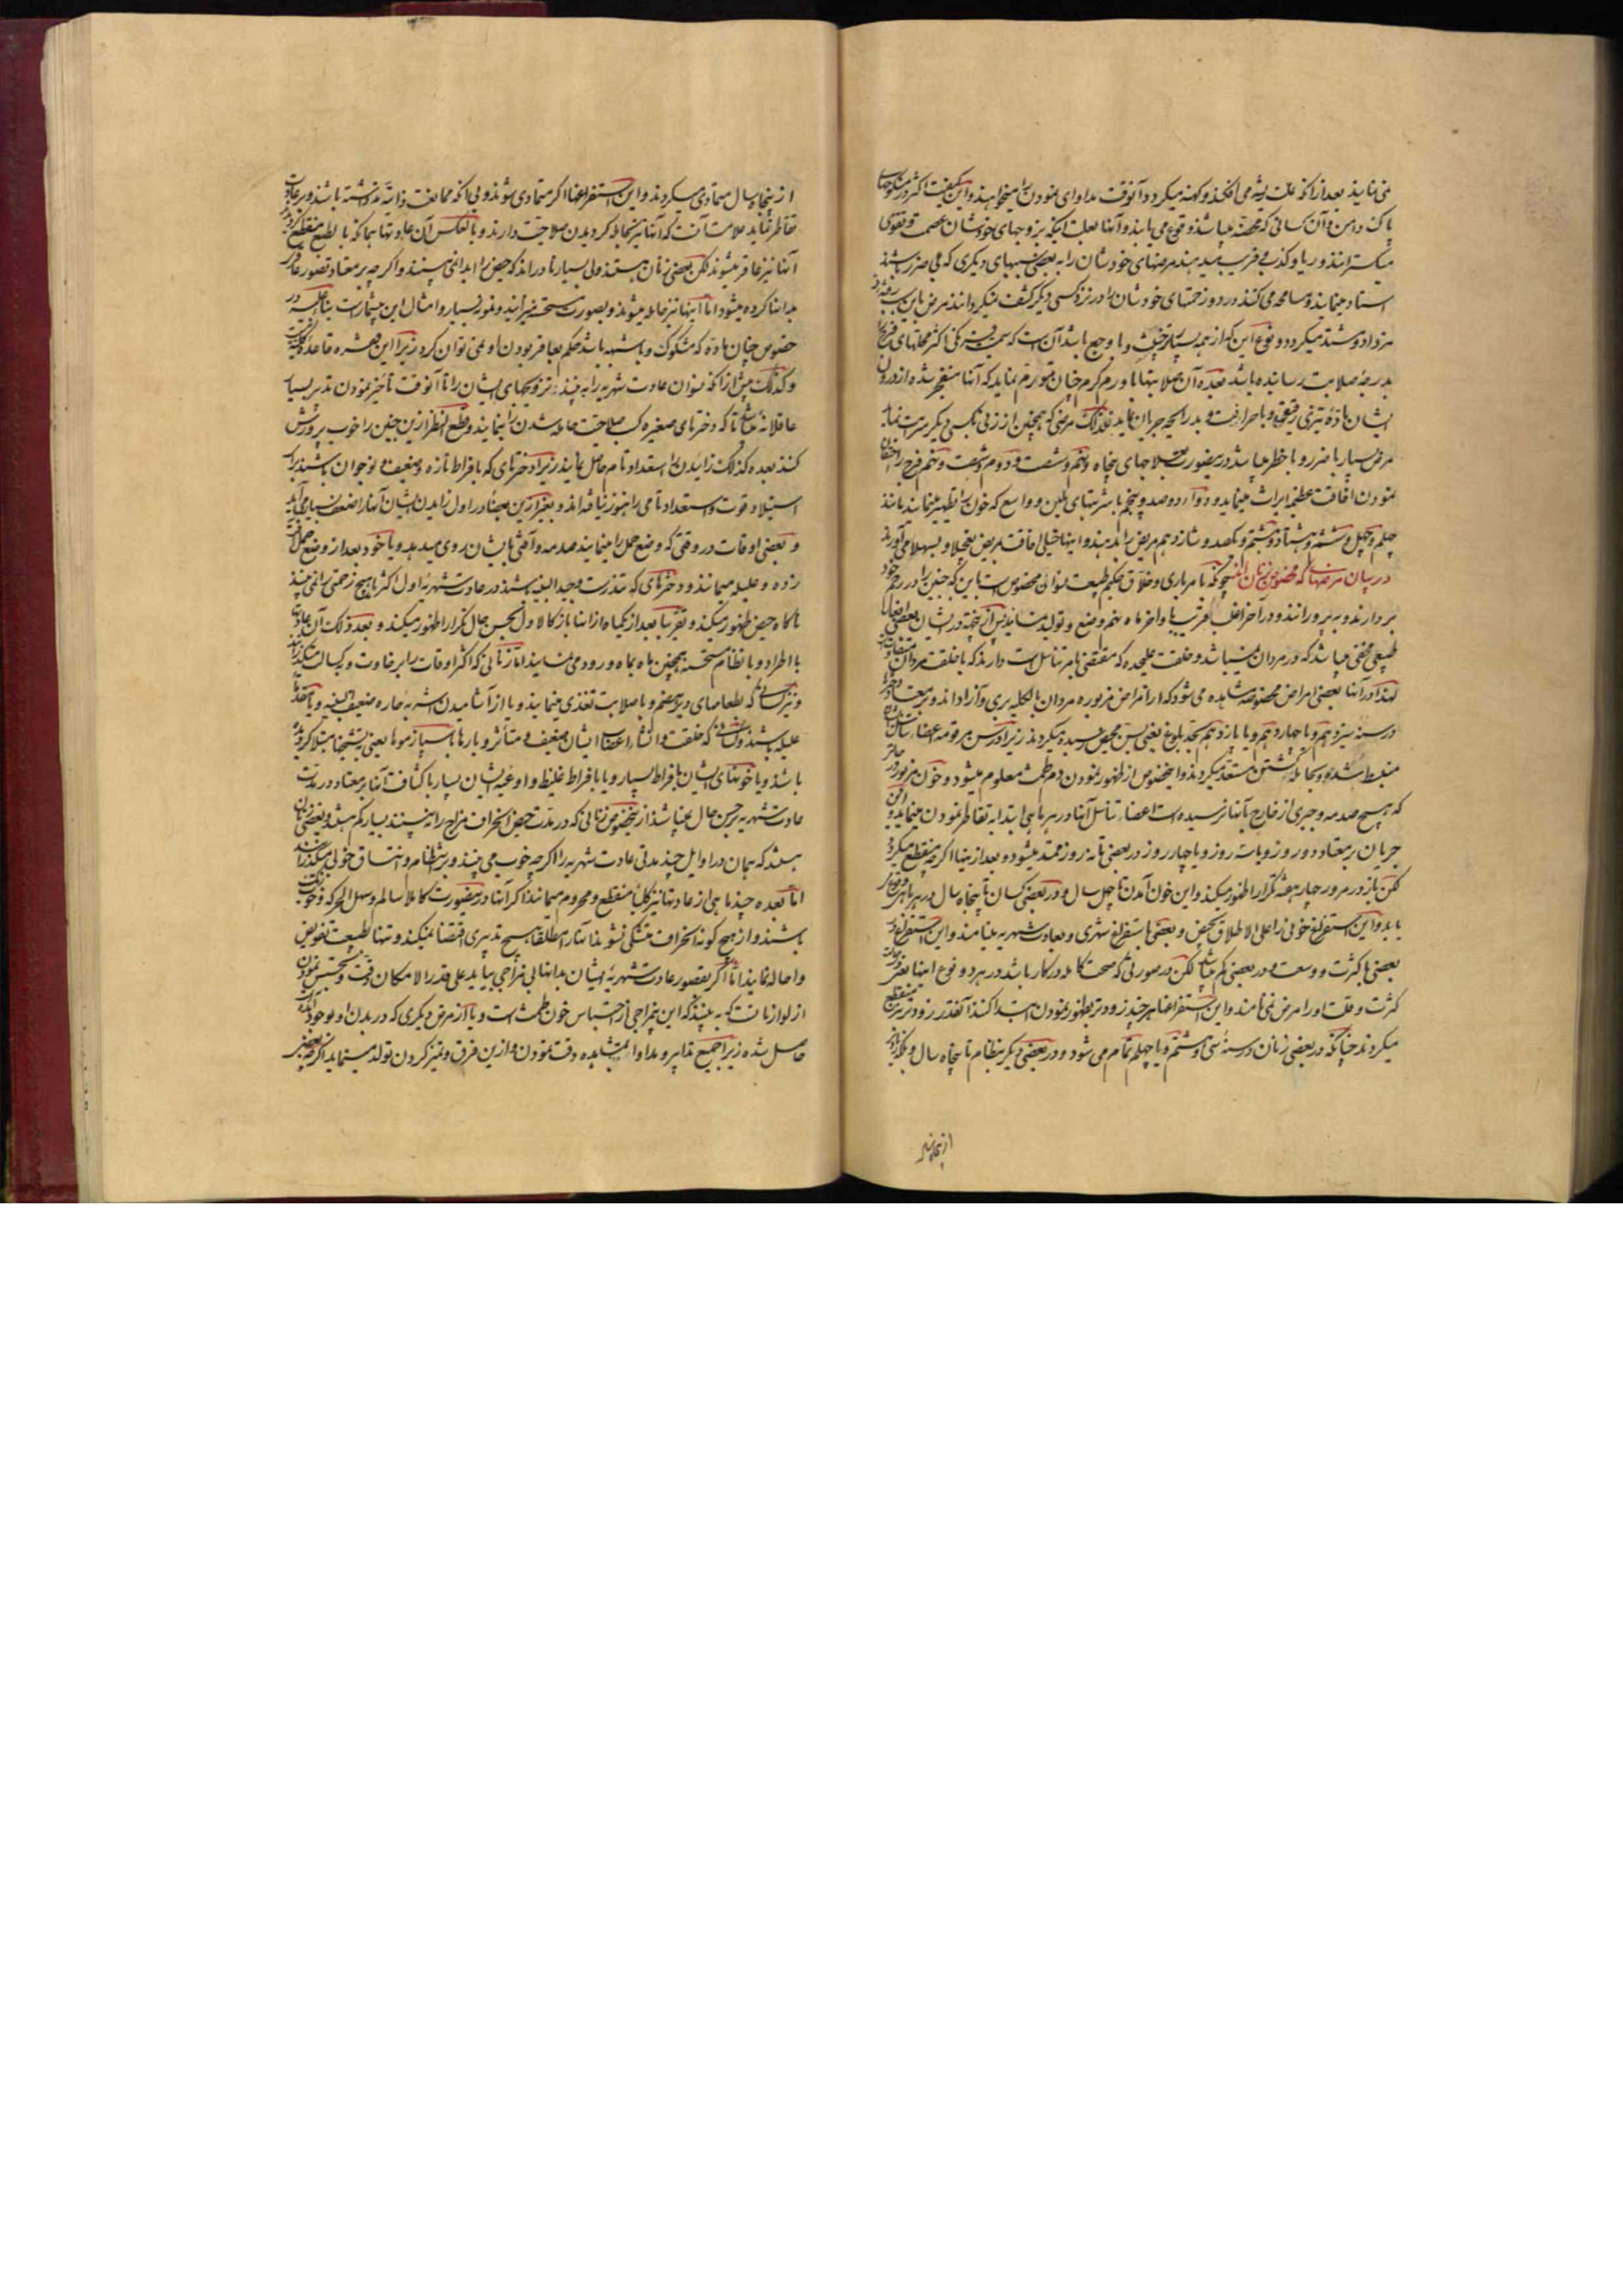 نمی نمایند بعد از آنکه علت ریشه می افکند و کهنه میکردد و آنوقت مداوای نمودن را میخواهند و این کیفیت اکثر در
پاک دامن و آن کسانی که می باشد وقوع می یابند و آنها بعلت اینکه بزوجهای خودشان عصمت و تقوی
میکسترانند و ریا و کذب فریب میدهند مرضهای خودشان را به بعضی سببهای دیکری که بی ضرر باشند
اسناد مینمایند و مسامحه می کنند و در زحمتهای خودشان را در نزد کسی دیکر کشف نمیکردانند مرض باین سبب
مزداد و مشتد میکردد و نوع این که از همه بسیار خبیث و با وجع باشد آن است که اکثر محلهای فرج را
بدرجهٔ صلابت رسانیده باشد بعده آن صلابتها با ورم کرم چنان تورم نماید که آنها منفجر شده از درون
ایشان مادهٔ تیزی رقیق و با حرافت و بد رایحه جریان نماید کذلک مرضی که همچنین از زنی بکسی دیکر سرایت نماید
مرض بسیار با ضرر و با خطر میباشد در ینصورت علاجهای پنجاه و پنجم و شصت و دوم و شصت و پنجم فرج را
نمودن افاقت عظیم ایراث مینماید و دوصد و پنجم با شربتهای ملین و واسع که خون را تطهیر مینمایند مانند
چهلم و چهل و ششم و هشتاد و هشتم و یکصد و شانزدهم مریض را بدهند و اینها خیلی افاقت بمریض بتعجیل و بسهولت می آورند
در بیان مرضها که مخصوص زنان اند چونکه بامر باری و خلاق حکیم طبیعت نسوان مخصوص است باین که جنین را در رحم خود
بردارند و به پرورانند و در آخر اغلب قریب باواخر ماه نهم وضع و تولید نمایند پس در ایشان بعضی افعال
طبیعی مختفی میباشد که در مردان نمیباشد و خلقت علیحده که مقتضی بامر تناسل است دارند که با خلقت مردان
لهذا در آنها بعضی امراض مخصوصه مشاهده می شود که از امراض مزبوره مردان بالکلیه بری و آزاد اند و بر معتاد
در سنهٔ سیزدهم و یا چهاردهم و یا پانزدهم بحد بلوغ یعنی بسن محیض رسیده میکردند زیرا در سن مرقومه اعضاء تناسل
منبسط شده و بحامله کشتن مستعد میکردند و اینخصوص از ظهور نمودن دم طمث معلوم میشود و خون مزبور در
که هیچ صدمه و جبری از خارج بآنها نرسیده است اعضاء تناسل آنها در هر ماهی ابتدا به تقاطر نمودن مینماید و این
جریان بر معتاد دو روز و یا سه روز و یا چهار روز و در بعضی تا نه روز ممتد میشود و بعد از اینها اکرچه منقطع میکردد
لکن باز در مرور چهار هفته تکرار ظهور میکند و این خون آمدن تا چهل سال و در بعضی کسان تا پنجاه سال در هر ماهی
یابد و این استفراغ خونی را علی الاطلاق بحیض و بعضی باستفراغ شهری و بعادت شهریه مینامند و این استفراغ در
بعضی با کثرت و وسعت و در بعضی کم میباشد لکن در صورتی که صحت کامله در کار باشد در هر دو نوع اینها
کثرت و قلت او را مرض نمی نامند و این استفراغها هر چند زودتر بظهور نمودن ابتدا کنند آنقدر زودتر نیز منقطع
میکردند چنانکه در بعضی زنان در سنهٔ سی و هشتم و یا چهلم تمام می شود و در بعضی دیکر بنظام تا پنجاه سال و بلکه
از پنجاه سال متمادی میکردند و این استفراغها اکر متمادی شوند و بی آنکه ممانعت ذاتیه نداشته باشند و بر عادت
تقاطر نماید علامت آنست که آنها نیز بحامله کردیدن صلاحیت دارند و بالعکس آن عادتها همانکه بالطبع منقطع کردند
آنها نیز عاقر میشوند لکن بعضی زنان هستند ولی بسیار نادر اند که حیض را ابدا نمی بینند و اکرچه بر معتاد تصور عاقر
بدانها کرده میشود اما اینها نیز حامله میشوند و بصورت مستحسنه میزایند و نمونه بسیار و امثال این بیشمارست بناء علیه در
خصوص چنان ماده که مشکوک و با شبهه باشد حکم بعاقر بودن او نمی توان کرد زیرا این همیشه قاعدهٔ کلیه نیست
و کذلک پیش از آنکه نسوان عادت شهریه را به بینند تزویجهای ایشان را تا آنوقت تأخیر نمودن تدبیر بسیار
عاقلانه میباشد تا که دخترهای صغیره کسب صلاحیت حامله شدن را بنمایند و قطع النظر ازین جنین را خوب پرورش
کنند بعده کذلک زائیدن را استعداد تام حاصل نمایند زیرا دخترهای که بافراط تازه و ضعیف و نوجوان باشند برای
استیلاد قوت و استعداد تامی را هنوز نیافته اند و بغیر ازین بعضا در اول زائیدن ایشان آنها را ضعف بسیار می آید
و بعضی اوقات در وقتی که وضع حمل را مینمایند صدمه و آفتی بایشان روی میدهد و یا خود بعد از وضع حمل آفت
زده و علیله میمانند و دخترهای که تندرست و جید البنیه باشند در عادت شهریهٔ اول اکثر یا هیچ زحمتی را نمی بینند
ناکاه حیض ظهور میکند و تقریبا بعد از یکماه از اینها باز کالاول بحسن حال تکرار ظهور میکند و بعد ذلک آن عادت
با اطراد و با نظام مستحسنه همچنین ماه بماه ورود می نماید اما زنانی که اکثر اوقات را بر رخاوت و کسالت میکذرانند
و نیز کسانی که بطعامهای دیر هضم و با صلابت تغذی مینمایند و یا از آشامیدن اشربه حاره ضعیف البنیه و یا خود
علیله باشند و کسانی که خلقت و انشاء اعضاء ایشان ضعیف و متأثر و بارها باسپازموها یعنی بتشنجها مبتلا کردیده
باشند و یا خونهای ایشان بافراط بسیار و یا بافراط غلیظ و اوعیهٔ ایشان بسیار با کثافت آنها بر معتاد در مدت
عادت شهریه بر حسن حال نمیباشند از خصوص زنانی که در مدت حیض انحراف مزاج را نه بینند بسیار کم هستند و بعضی زنان
هستند که همان در اوایل چند مدتی عادت شهریه را اکرچه خوب می بینند و بر انتظام و اتساق خوبی میکذرانند
اما بعده چند ماهی از عادتها نیز کلیا منقطع و محروم میمانند اکر آنها در ینصورت کاملا سالم و سهل الحرکه و خوب
باشند و از هیچ کونه انحراف متشکی نشوند اینها را مطلقا هیچ تدبیری اقتضا نمیکند و تنها بطبیعت تفویض
و احاله نمایند اما اکر بقصور عادت شهریهٔ ایشان بدانها بی مزاجی بیاید علی قدر الامکان دقت و تجسس نمودن
از لوازمات است که به بینند که این بیمزاجی از احتباس خون طمث است و یا از مرض دیکری که در بدن او بوجود آمده
حاصل شده زیرا جمیع تدابیر و مداوا بمشاهده دقت نمودن و ازین فرق و تمیز کردن تولد مینماید اکرچه بعضی